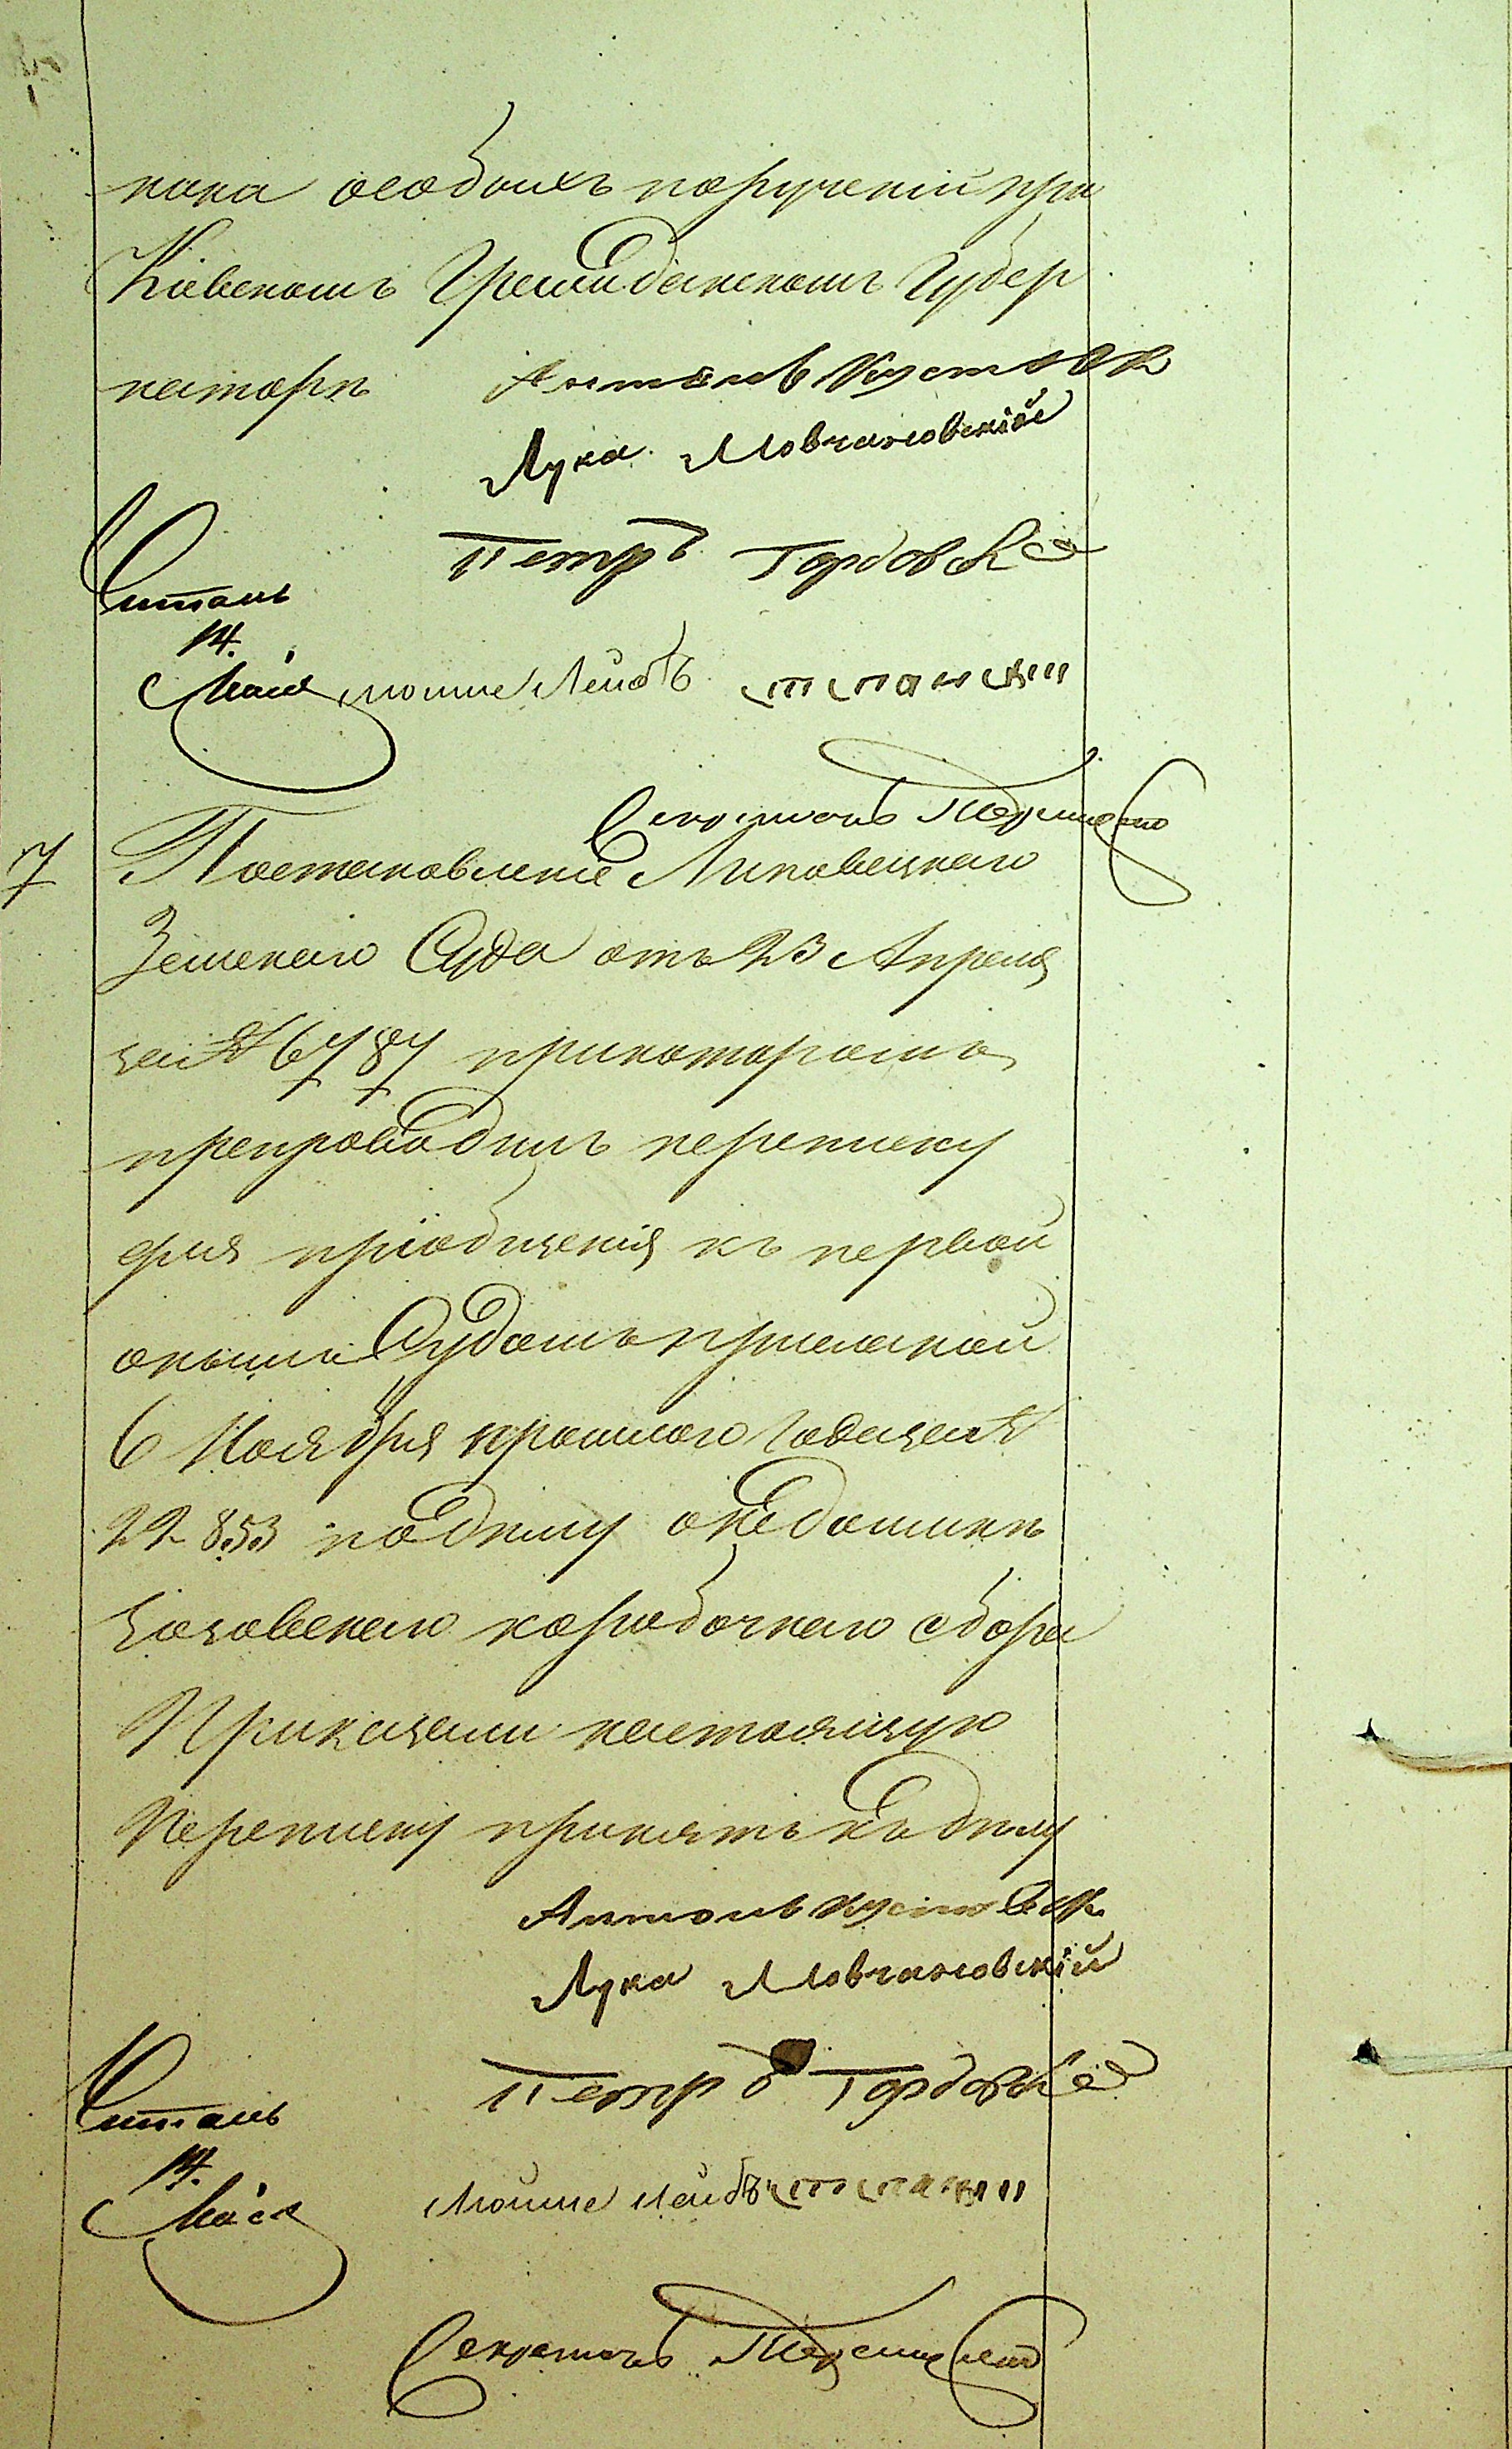 ника особыхъ порученій при
Кіевскомъ Гражданскомъ Губер
наторѣ Антонъ Кустюк
Лука Мовчановскій
Петръ Горбовск
Читалъ
14.
Мая Мошие Лейбъ
Секретарь
7 Постановленіе Липовецкаго
Земскаго Суда отъ 23 Апреля
за № 6787 при которомъ
препроводилъ переписку
для пріобщенія къ первой
онымъ Судомъ присланной
6 Ноября прошлаго года за №
22853 по дѣлу о недоимкѣ
коробочнаго сбора
Приказали настоящую
переписку принять къ дѣлу
Антонъ
Лука Мовчановскій
Петръ Горбовск
Читалъ
14.
Мая Мошие Лейбъ
Секретарь